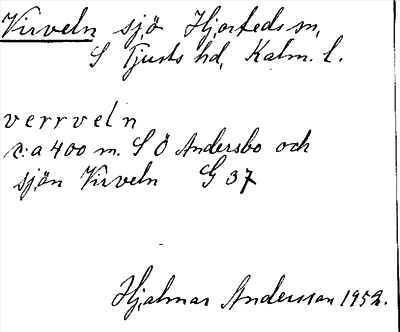 Virveln sjö Hjorteds sn,
S Tjusts hd, Kalm. l.
verrveln
c:a 400 m. S Ö Andersbo och
sjön Virveln G 37
Hjalmar Andersson 1952.